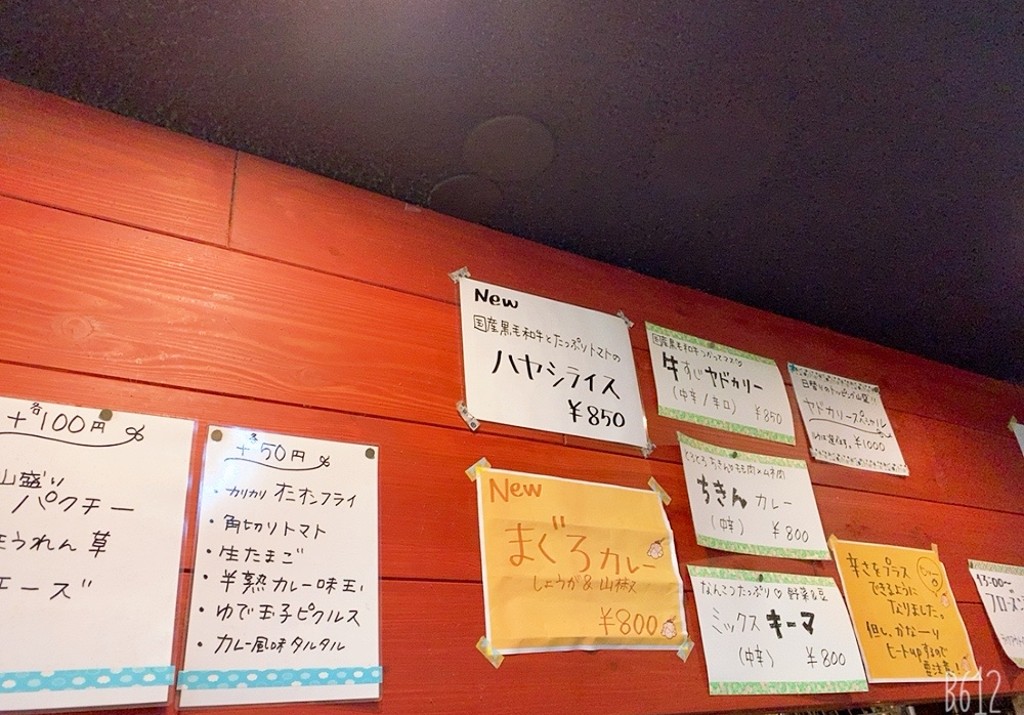 +各100円
山盛パクチー
うれん草
ーズ
+各50円
・カリカリ オニオンフライ
・角切りトマト
・生たまご
・半熟カレー味玉
・ゆで玉子ピクルス
・カレー風味タルタル
New
国産黒毛和牛とたっぷりトマトの
ハヤシライス
¥850
New
まぐろカレー
しょうが&山椒
¥800
国産黒毛和牛つかってマス♡
牛すじヤドカリー
(中辛/辛口) ¥850
日替りのトッピング山盛!!
ヤドカリースペシャル
¥1000
ちきんカレー
(中辛) ¥800
なんこつたっぷり♡ 野菜&豆
ミックス キーマ
(中辛) ¥800
辛さをプラス
できるように
なりました。
但し、かなーり
ヒートupするので
要注意!
15:00〜
フローズン
B612